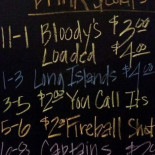 Drink Specials
11-1 Bloody's $3.00
Loaded $4.00
1-3 Long Islands $4
3-5 $2.00 You Call Its
5-6 $2.00 Fireball Shot
6-8 Captains $2